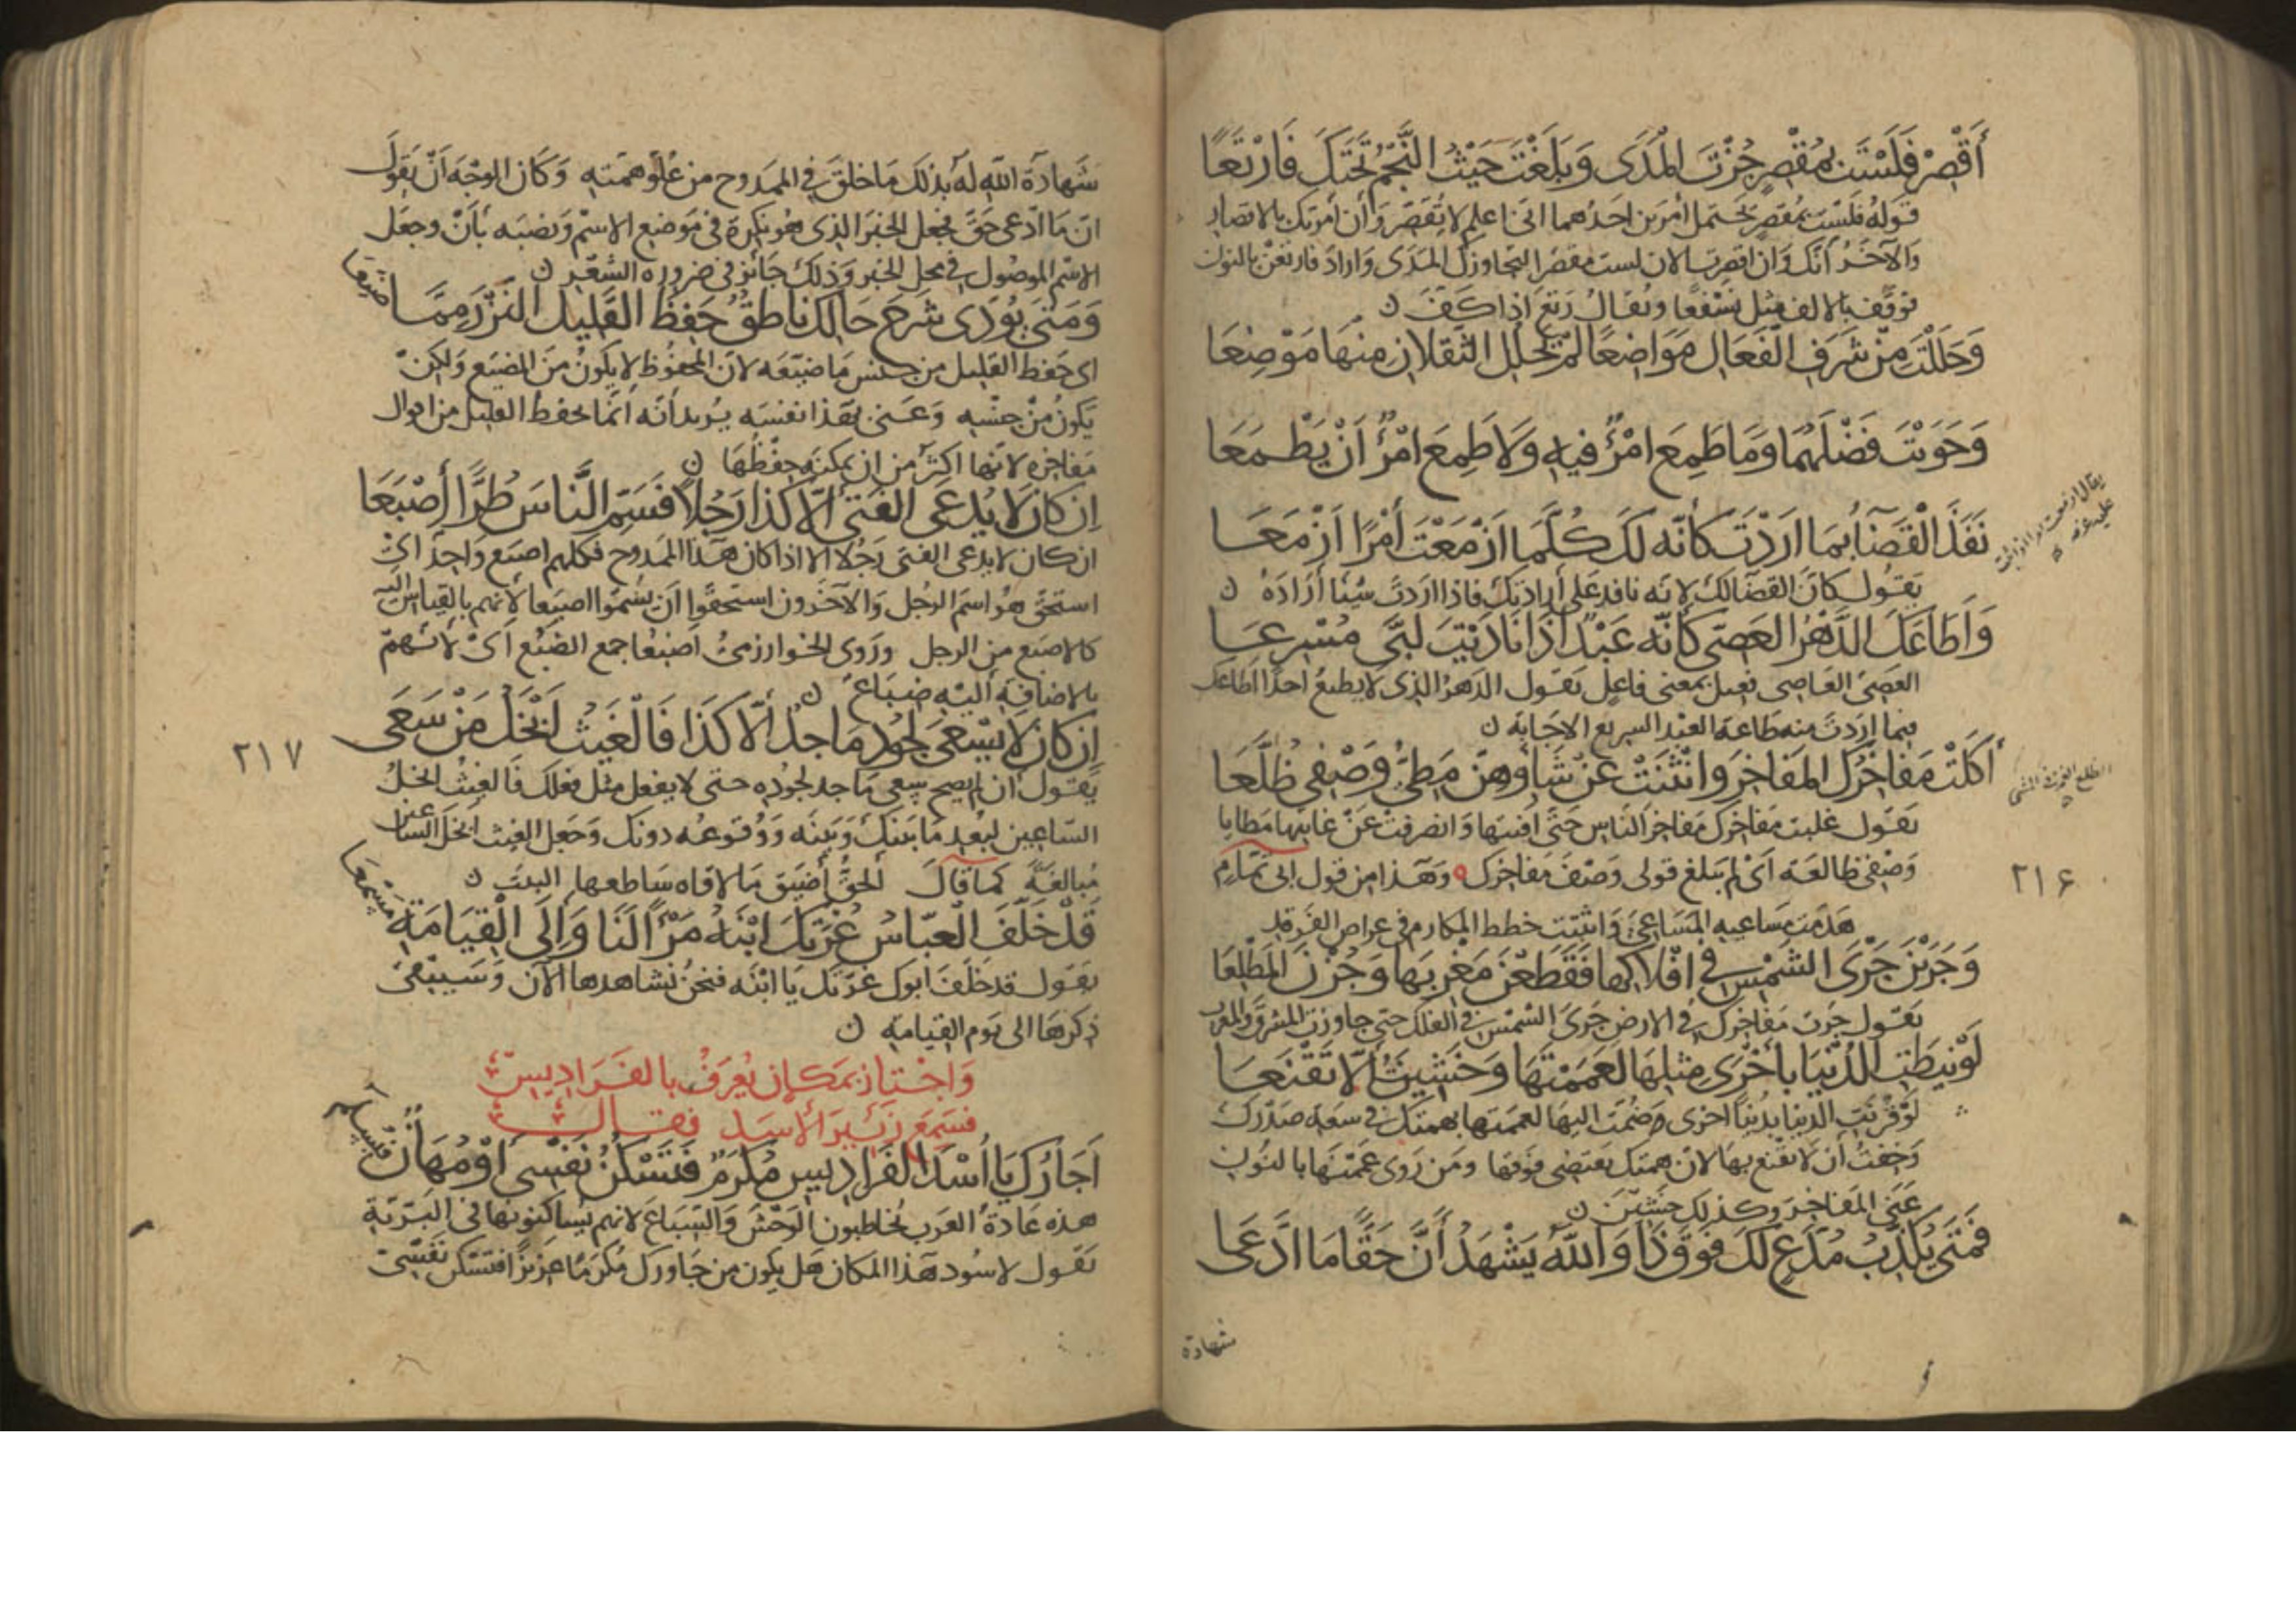 أَقْصِرْ فَلَسْتَ بِمُقْصِرٍ جُزْتَ الْمَدَى وَبَلَغْتَ حَيْثُ النَّجْمُ تَحْتَكَ فَارْتَعَا
قوله فلست بمقصر يحتمل أمرين احدهما انى اعلم لا تقصر وأن أمرتك بالاقصار
والآخر أنك وان اقصرت الان لست مقصرا لتجاوزك المدى واراد فارتعن بالنون
فوقف بالالف مثل لنسفعًا ويقال رتع اذا كف ن
وَحَلَلْتَ مِنْ شَرَفِ الْفَعَالِ مَوَاضِعًا لَمْ يَحْلُلِ الثَّقَلَانِ مِنْهَا مَوْضِعَا
وَحَوَيْتَ فَضْلَهُمَا وَمَا طَمِعَ امْرُؤٌ فِيهِ وَلَا طَمِعَ امْرُؤٌ أَنْ يَطْمَعَا
نَفَذَ الْقَضَاءُ بِمَا ارَدْتَ كَأَنَّهُ لَكَ كُلَّمَا ازْمَعْتَ أَمْرًا ازْمَعَا
يقول كان القضا لك لانه نافد على ارادتك فاذا اردت شيئا أراده ن
وَأَطَاعَكَ الدَّهْرُ الْعَصِيُّ كَأَنَّهُ عَبْدٌ اذَا نَادَيْتَ لَبَّى مُسْرِعَا
العصى العاصى فعيل بمعنى فاعل يقول الدهر الذى لا يطيع احدًا اطاعك
فيما اردت منه طاعة العبد السريع الاجابة ن
أَكَلَتْ مَفَاخِرُكَ الْمَفَاخِرَ وَانْثَنَتْ عَنْ شَأْوِهِنَّ مَطِيُّ وَصْفِي ظُلَّعَا
يقول غلبت مفاخرك مفاخر الناس حتى افنتها وانصرفت عن غايتها مطايا
وصفى ظالعة اى لم يبلغ قولى وصف مفاخرك وهذا من قول ابى تمام
هدمت مساعيه المساعى وابتنت خطط المكارم فى عراص الفرقد
وَجَرَيْنَ جَرْيَ الشَّمْسِ فِي افْلَاكِهَا فَقَطَعْنَ مَغْرِبَهَا وَجُزْنَ الْمَطْلِعَا
يقول جرت مفاخرك فى الارض جرى الشمس فى الفلك حتى جاوزت المشرق والمغرب
لَوْ نِيطَتِ الدُّنْيَا بِأُخْرَى مِثْلِهَا لَعَمَمْتَهَا وَخَشِيتُ أَلَّا تَقْنَعَا
لو قرنت الدنيا بدنيا اخرى وضمت اليها لعممتها بهمتك فى سعة صدرك
وخفت أن لا تقنع بها لان همتك تقتضى فوقها ومن روى عممنها بالنون
عنى المفاخر وكذلك خشين ن
فَمَتَى يُكَذَّبُ مُدَّعٍ لَكَ فَوْقَ ذَا وَاللّٰهُ يَشْهَدُ أَنَّ حَقًّا مَا ادَّعَى
شهادة
٢١۶
شهادة الله له بذلك ما خلق فى الممدوح من علو همته وكان الوجه أن يقول
ان ما ادعى حق فجعل الخبر الذى هو نكرة فى موضع الاسم ونصبه بأن وجعل
الاسم الموصول فى محل الخبر وذلك جائز فى ضرورة الشعر ن
وَمَتَى يُؤَدِّى شَرْحَ حَالِكَ نَاطِقٌ حَفِظَ الْقَلِيلَ النَّزْرَ مِمَّا ضَيَّعَا
اى حفظ القليل من جنس ما ضيعه لان المحفوظ لا يكون من المضيع ولكن
يكون من جنسه وعنى بهذا نفسه يريد أنه انما يحفظ القليل من احوال
مفاخره لانها اكثر من ان يمكنه حفظها ن
إِنْ كَانَ لَا يُدْعَى الْفَتَى إِلَّا كَذَا رَجُلًا فَسَمِّ النَّاسَ طُرًّا أَصْبَعَا
ان كان لا يدعى الفتى رجلا الا اذا كان هذا الممدوح فكلهم اصبع واحد اى
استحق هو اسم الرجل والآخرون استحقوا أن يسموا اصبعا لأنهم بالقياس اليه
كالاصبع من الرجل وروى الخوارزمى اضبعا جمع الضبع اى لأنهم
بالاضافة اليه ضباع ن
إِنْ كَانَ لَا يَسْعَى لِجُودٍ مَاجِدٌ إِلَّا كَذَا فَالْغَيْثُ أَبْخَلُ مَنْ سَعَى
يقول ان لم يصح سعى ماجد لجوده حتى لا يفعل مثل فعلك فالغيث ابخل
الساعين لبعد ما بينك وبينه ووقوعه دونك وجعل الغيث ابخل الساعين
مبالغة كما قال ألحق أضيق ما لاقاه ساطعها البيت ن
قَدْ خَلَّفَ الْعَبَّاسُ غُرَّتَكَ ابْنَهُ مَرْأًى لَنَا وَإِلَى الْقِيَامَةِ مَسْمَعَا
يقول قد خلف ابوك غرتك يا ابنه فنحن نشاهدها الآن وسيبقى
ذكرها الى يوم القيامة ن
وَاجْتَازَ بِمَكَانٍ يُعْرَفُ بِالْفَرَادِيسِ
فَسَمِعَ زَئِيرَ الْأَسَدِ فَقَالَ
أَجَارُكِ يَا أُسْدَ الْفَرَادِيسِ مُكْرَمُ فَتَسْكُنُ نَفْسِي أَوْ مُهَانٌ فَمُسْلَمُ
هذه عادة العرب يخاطبون الوحش والسباع لانهم يساكنونها فى البرية
يقول لاسود هذا المكان هل يكون من جاورك مكرما عزيزا فتسكن نفسى
٢١٧